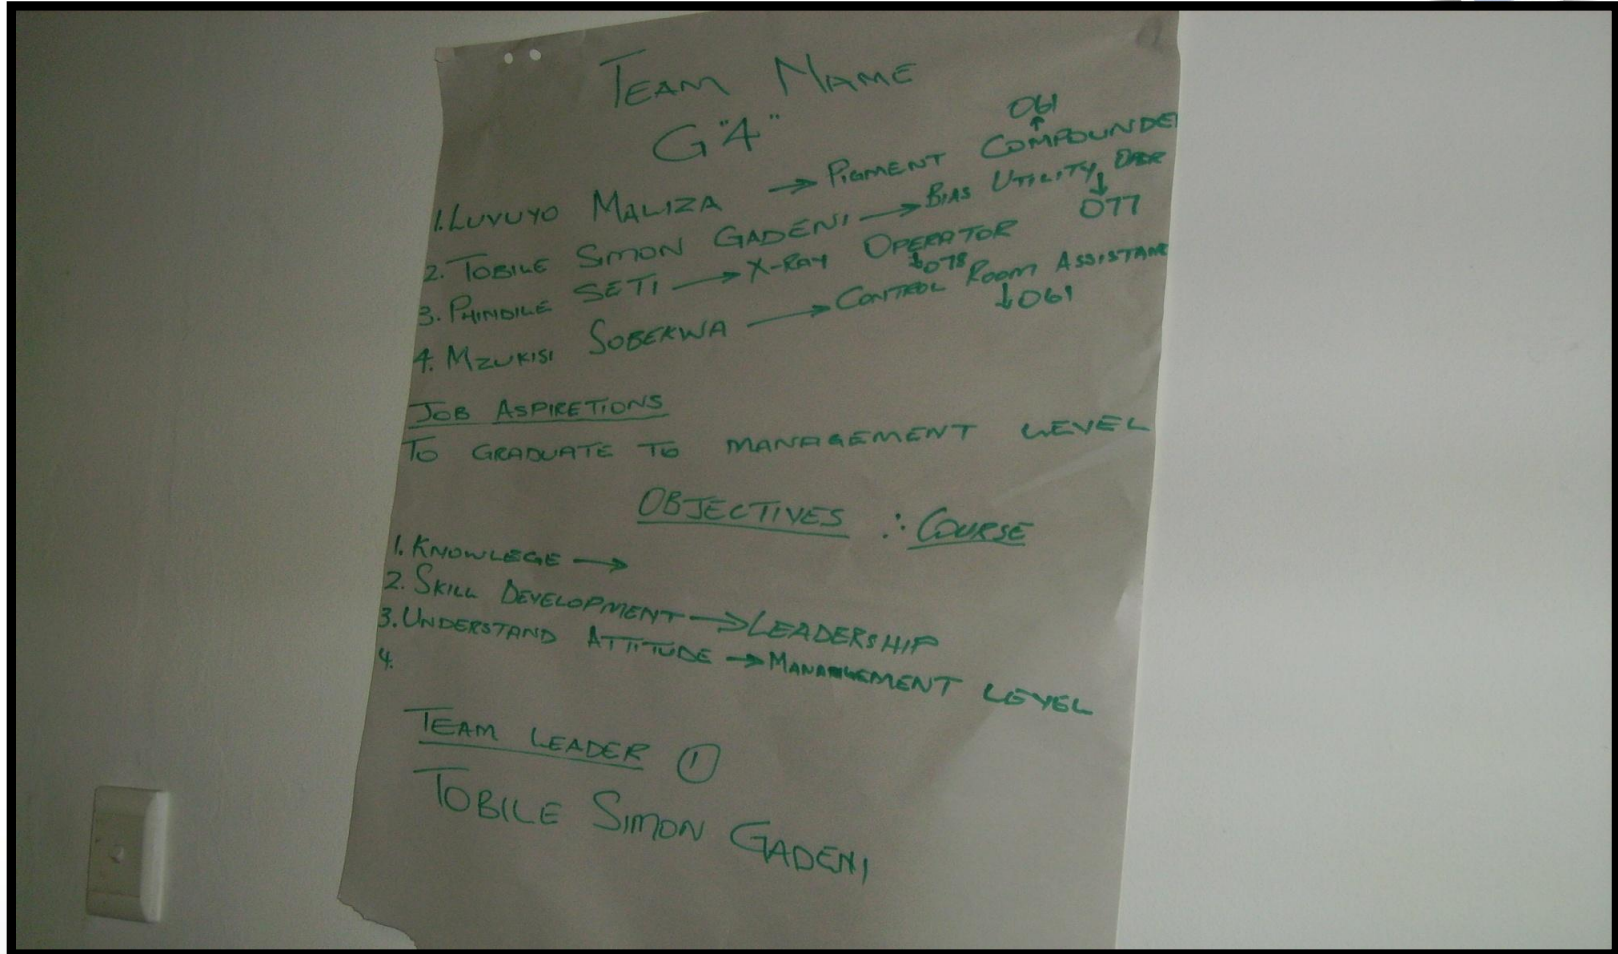 TEAM NAME
G"4"
061
1. LUVUYO MALIZA → PIGMENT COMPOUNDE
2. TOBILE SIMON GADENI → BIAS UTILITY
077
3. PHINDILE SETI → X-RAY OPERATOR
↓078
4. MZUKISI SOBEKWA → CONTROL ROOM ASSISTAN
↓061
JOB ASPIRETIONS
TO GRADUATE TO MANAGEMENT LEVEL
OBJECTIVES ∴ COURSE
1. KNOWLEGE →
2. SKILL DEVELOPMENT → LEADERSHIP
3. UNDERSTAND ATTITUDE → MANAGEMENT LEVEL
4.
TEAM LEADER ①
TOBILE SIMON GADENI